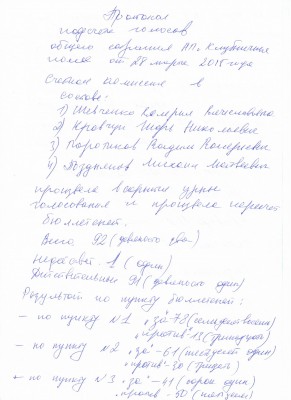 Протокол
подсчета голосов
общего собрания НП "Клубничная
поляна" от 28 марта 2015 года
Счетная комиссия в
составе:
1) Шевченко Валерия Вячеславовна
2) Кравчун Игорь Николаевич
3) Коротиков Вадим Валериевич
4) Поздняков Михаил Матвеевич
произвела вскрытие урны
голосования и произвела пересчет
бюллетеней.
Всего 92 (девяносто два)
Недейств. 1 (один)
Действительных 91 (девяносто один)
Результат по пункту бюллетеней:
– по пункту №1 "за" - 78 (семьдесят восемь)
"против" 13 (тринадцать)
– по пункту №2 "за" - 61 (шестьдесят один)
"против" - 30 (тридцать)
– по пункту №3 "за" - 41 (сорок один)
"против" - 50 (пятьдесят)